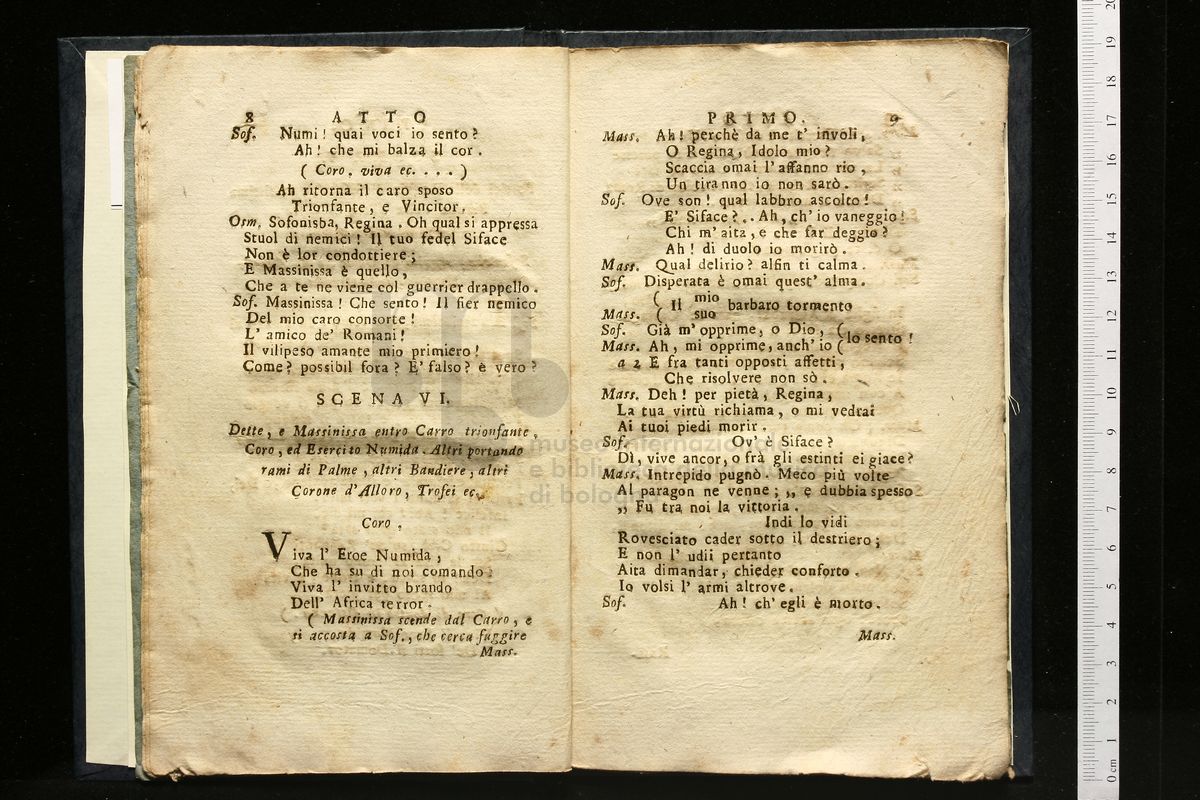 8 ATTO
Sof. Numi! quai voci io sento?
Ah! che mi balza il cor.
( Coro. viva ec. . . . )
Ah ritorna il caro sposo
Trionfante, e Vincitor.
Osm. Sofonisba, Regina. Oh qual si appressa
Stuol di nemici! Il tuo fedel Siface
Non è lor condottiere;
E Massinissa è quello,
Che a te ne viene col guerrier drappello.
Sof. Massinissa! Che sento! Il fier nemico
Del mio caro consorte!
L' amico de' Romani!
Il vilipeso amante mio primiero!
Come? possibil fora? E' falso? è vero?
SCENA VI.
Dette, e Massinissa entro Carro trionfante,
Coro, ed Esercito Numida. Altri portando
rami di Palme, altri Bandiere, altri
Corone d'Alloro, Trofei ec.
Coro.
Viva l' Eroe Numida,
Che ha su di noi comando
Viva l' invitto brando
Dell' Africa terror.
( Massinissa scende dal Carro, e
si accosta a Sof., che cerca fuggire
Mass.
PRIMO. 9
Mass. Ah! perchè da me t' involi,
O Regina, Idolo mio?
Scaccia omai l' affanno rio,
Un tiranno io non sarò.
Sof. Ove son! qual labbro ascolto!
E' Siface?.. Ah, ch' io vaneggio!
Chi m' aita, e che far deggio?
Ah! di duolo io morirò.
Mass. Qual delirio? alfin ti calma.
Sof. Disperata è omai quest' alma.
( Il mio barbaro tormento
Mass. ( suo
Sof. Già m' opprime, o Dio, (
Mass. Ah, mi opprime, anch' io ( lo sento!
a 2 E fra tanti opposti affetti,
Che risolvere non sò.
Mass. Deh! per pietà, Regina,
La tua virtù richiama, o mi vedrai
Ai tuoi piedi morir.
Sof. Ov' è Siface?
Dì, vive ancor, o frà gli estinti ei giace?
Mass. Intrepido pugnò. Meco più volte
Al paragon ne venne; „ e dubbia spesso
„ Fu tra noi la vittoria.
Indi lo vidi
Rovesciato cader sotto il destriero;
E non l' udii pertanto
Aita dimandar, chieder conforto.
Io volsi l' armi altrove.
Sof. Ah! ch' egli è morto.
Mass.
museo internazionale
e biblioteca della musica
di bologna
20
19
18
17
16
15
14
13
12
11
10
9
8
7
6
5
4
3
2
1
0 cm